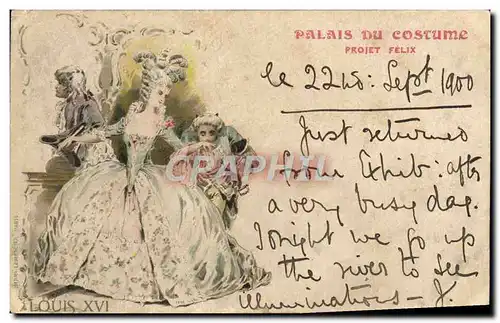 PALAIS DU COSTUME
PROJET FELIX
le 22nd: Sept 1900
Just returned
from Exhib: after
a very busy day.
Tonight we go up
the river to see
illuminations - J.
LOUIS XVI
CPARAMA